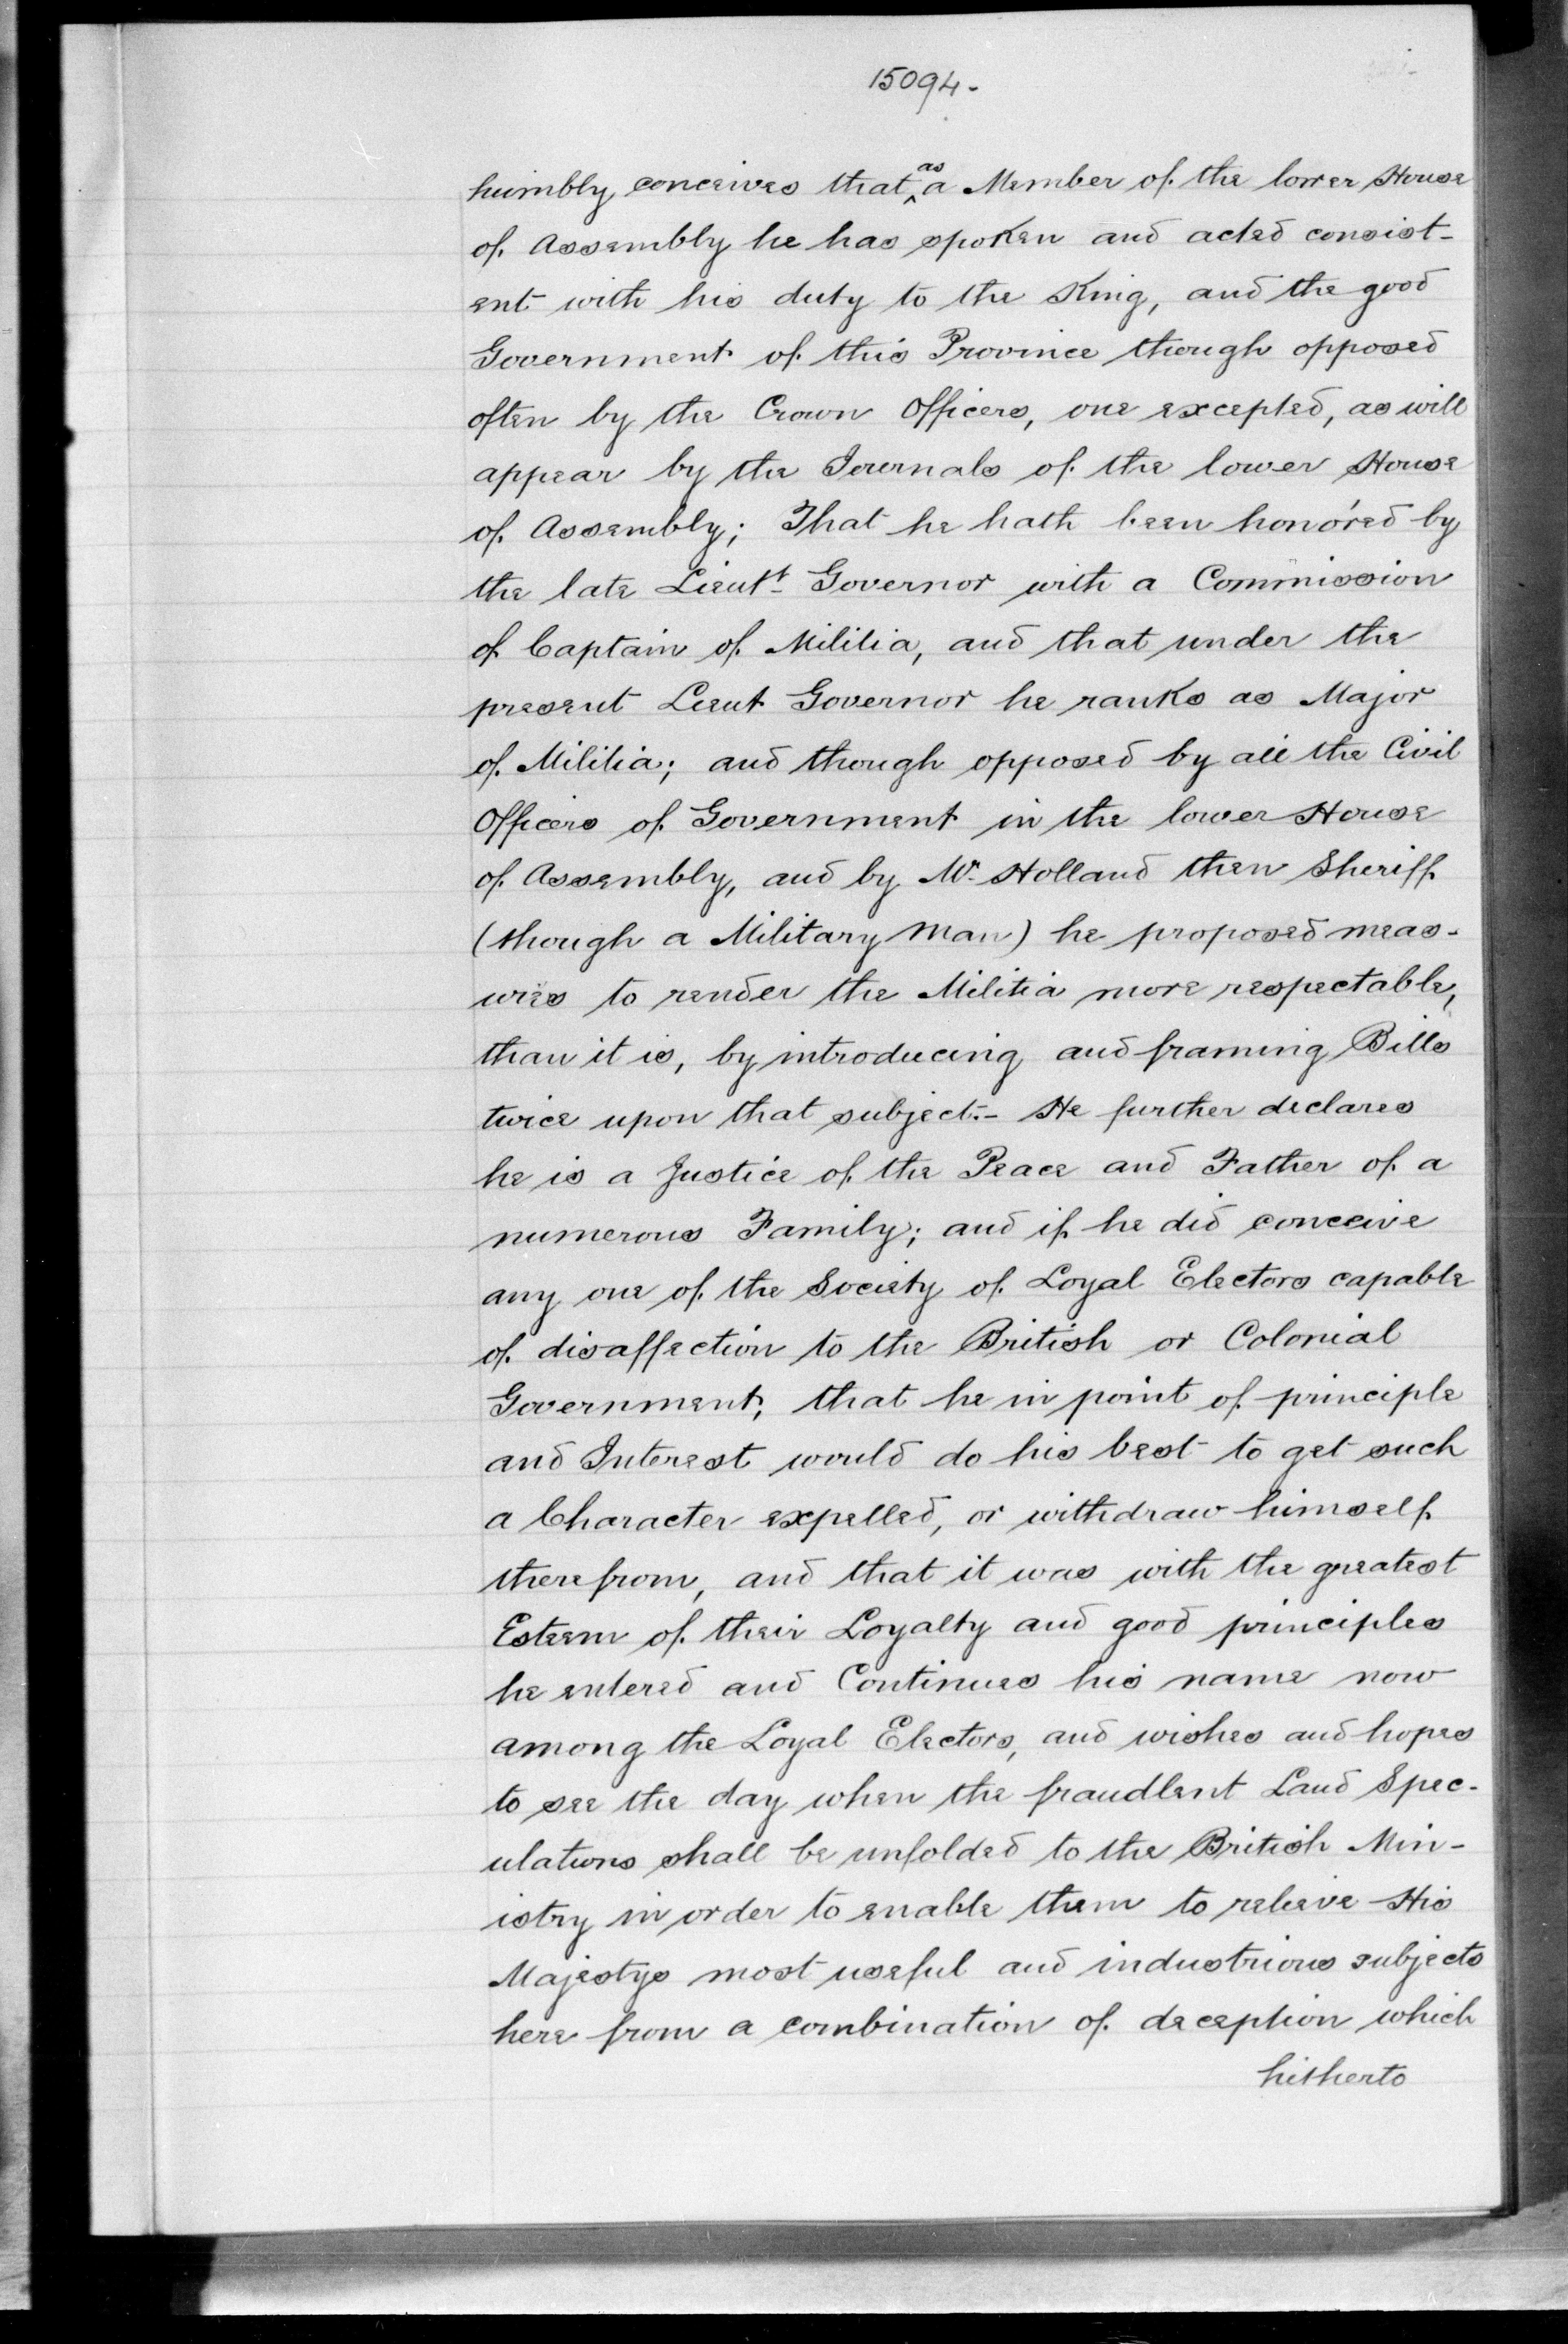 15094.
humbly conceives that ^as a Member of the lower House
of Assembly he has spoken and acted consist-
ent with his duty to the King, and the good
Government of this Province though opposed
often by the Crown Officers, one excepted, as will
appear by the Journals of the lower House
of Assembly; That he hath been honóred by
the late Lieutt Governor with a Commission
of Captain of Militia, and that under the
present Lieut Governor he ranks as Major
of Militia; and though opposed by all the Civil
Officers of Government in the lower House
of Assembly, and by Mr. Holland then Sheriff
(though a Military Man) he proposed meas-
ures to render the Militia more respectable,
than it is, by introducing and framing Bills
twice upon that subject.- He further declares
he is a Justice of the Peace and Father of a
numerous Family; and if he did conceive
any one of the Society of Loyal Electors capable
of disaffection to the British or Colonial
Government, that he in point of principle
and Interest would do his best to get such
a Character expelled, or withdraw himself
therefrom, and that it was with the greatest
Esteem of their Loyalty and good principles
he entered and Continues his name now
among the Loyal Electors, and wishes and hopes
to see the day when the fraudlent Land Spec-
ulations shall be unfolded to the British Min-
istry in order to enable them to releive His
Majestys most useful and industrious subjects
here from a combination of deception which
hitherto